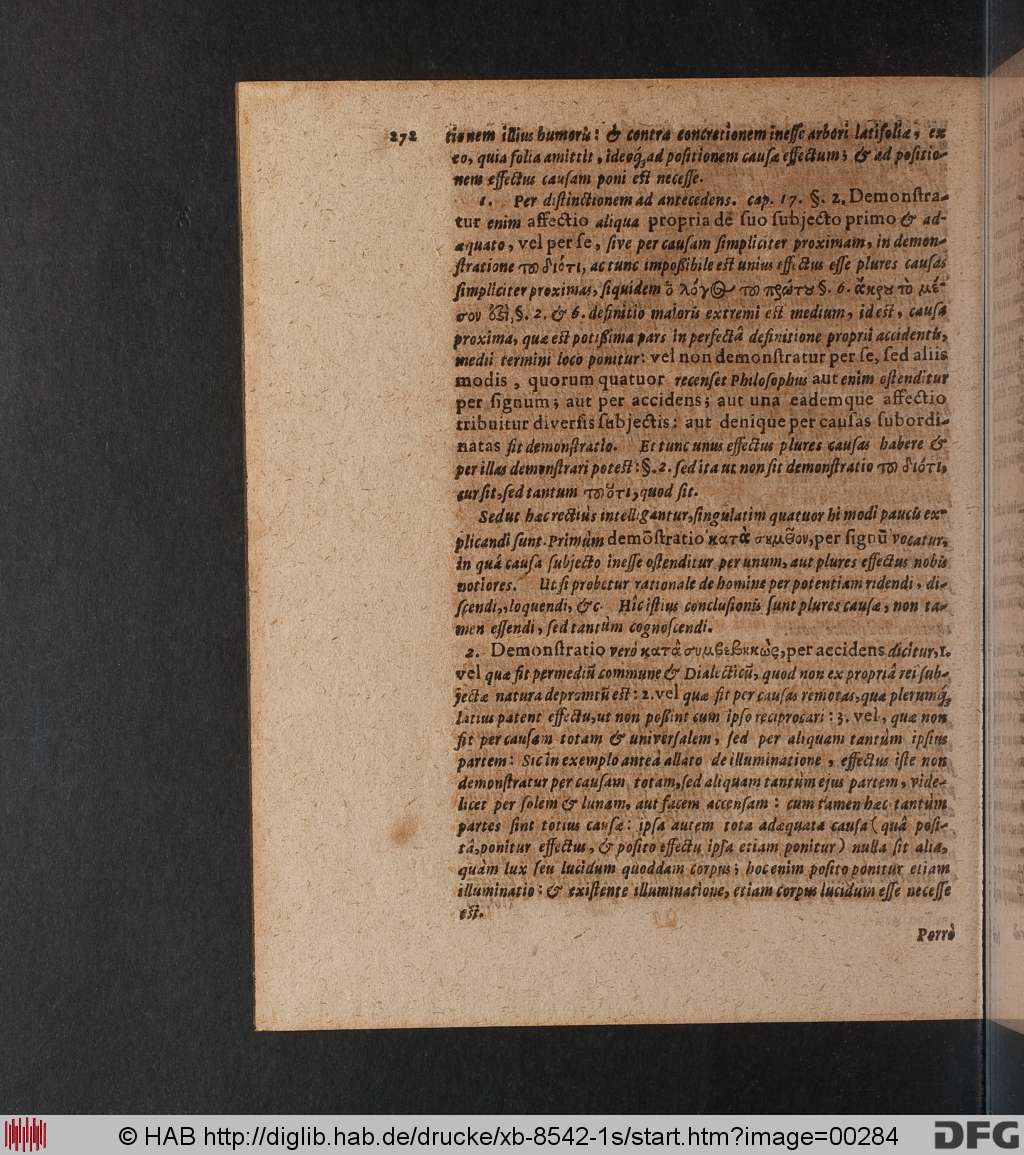 272 tionem illius humoris: & contra concretionem inesse arbori latifoliæ, ex
eo, quia folia amittit, ideoq́; ad positionem causæ effectum; & ad positio-
nem effectus causam poni est necesse.
1. Per distinctionem ad antecedens. cap. 17. §. 2. Demonstra-
tur enim affectio aliqua propria de suo subjecto primo & ad-
æquato, vel per se, sive per causam simpliciter proximam, in demon-
stratione τȣ διότι, ac tunc impoßibile est unius effectus esse plures causas
simpliciter proximas, siquidem ὁ λόγος τȣ πρώτȣ §. 6. ἄκρȣ τὸ μέ-
σον ἐστὶ, §. 2. & 6. definitio maioris extremi est medium, id est, causa
proxima, quæ est potißima pars in perfectâ definitione proprii accidentis,
medii termini loco ponitur: vel non demonstratur per se, sed aliis
modis, quorum quatuor recenset Philosophus aut enim ostenditur
per signum; aut per accidens; aut una eademque affectio
tribuitur diversis subjectis: aut denique per causas subordi-
natas fit demonstratio. Et tunc unus effectus plures causas habere &
per illas demonstrari potest: §. 2. sed ita ut non fit demonstratio τȣ διότι,
cur sit, sed tantum τȣ ὅτι, quod sit.
Sed ut hæc rectiùs intelligantur, singulatim quatuor hi modi paucis ex-
plicandi sunt. Primùm demōstratio κατὰ σημεῖον, per signū vocatur,
in quâ causa subjecto inesse ostenditur per unum, aut plures effectus nobis
notiores. Ut si probetur rationale de homine per potentiam ridendi, di-
scendi,, loquendi, &c. Hîc istius conclusionis sunt plures causæ, non ta-
men essendi, sed tantùm cognoscendi.
2. Demonstratio verò κατὰ συμβεβηκὼς, per accidens dicitur, 1.
vel quæ fit per mediū commune & Dialecticū, quod non ex propriâ rei sub-
jectæ natura depromtū est: 2. vel quæ fit per causas remotas, quæ plerumq́;
latius patent effectu, ut non poßint cum ipso reciprocari: 3. vel, quæ non
fit per causam totam & universalem, sed per aliquam tantùm ipsius
partem: Sic in exemplo anteà allato de illuminatione, effectus iste non
demonstratur per causam totam, sed aliquam tantùm ejus partem, vide-
licet per solem & lunam, aut facem accensam: cum tamen hæc tantùm
partes sint totius causæ: ipsa autem tota adæquata causa (quâ posi-
tâ, ponitur effectus, & posito effectu ipsa etiam ponitur) nulla sit alia,
quàm lux seu lucidum quoddam corpus; hoc enim posito ponitur etiam
illuminatio: & existente illuminatione, etiam corpus lucidum esse necesse
est.
Porrò
© HAB http://diglib.hab.de/drucke/xb-8542-1s/start.htm?image=00284
DFG